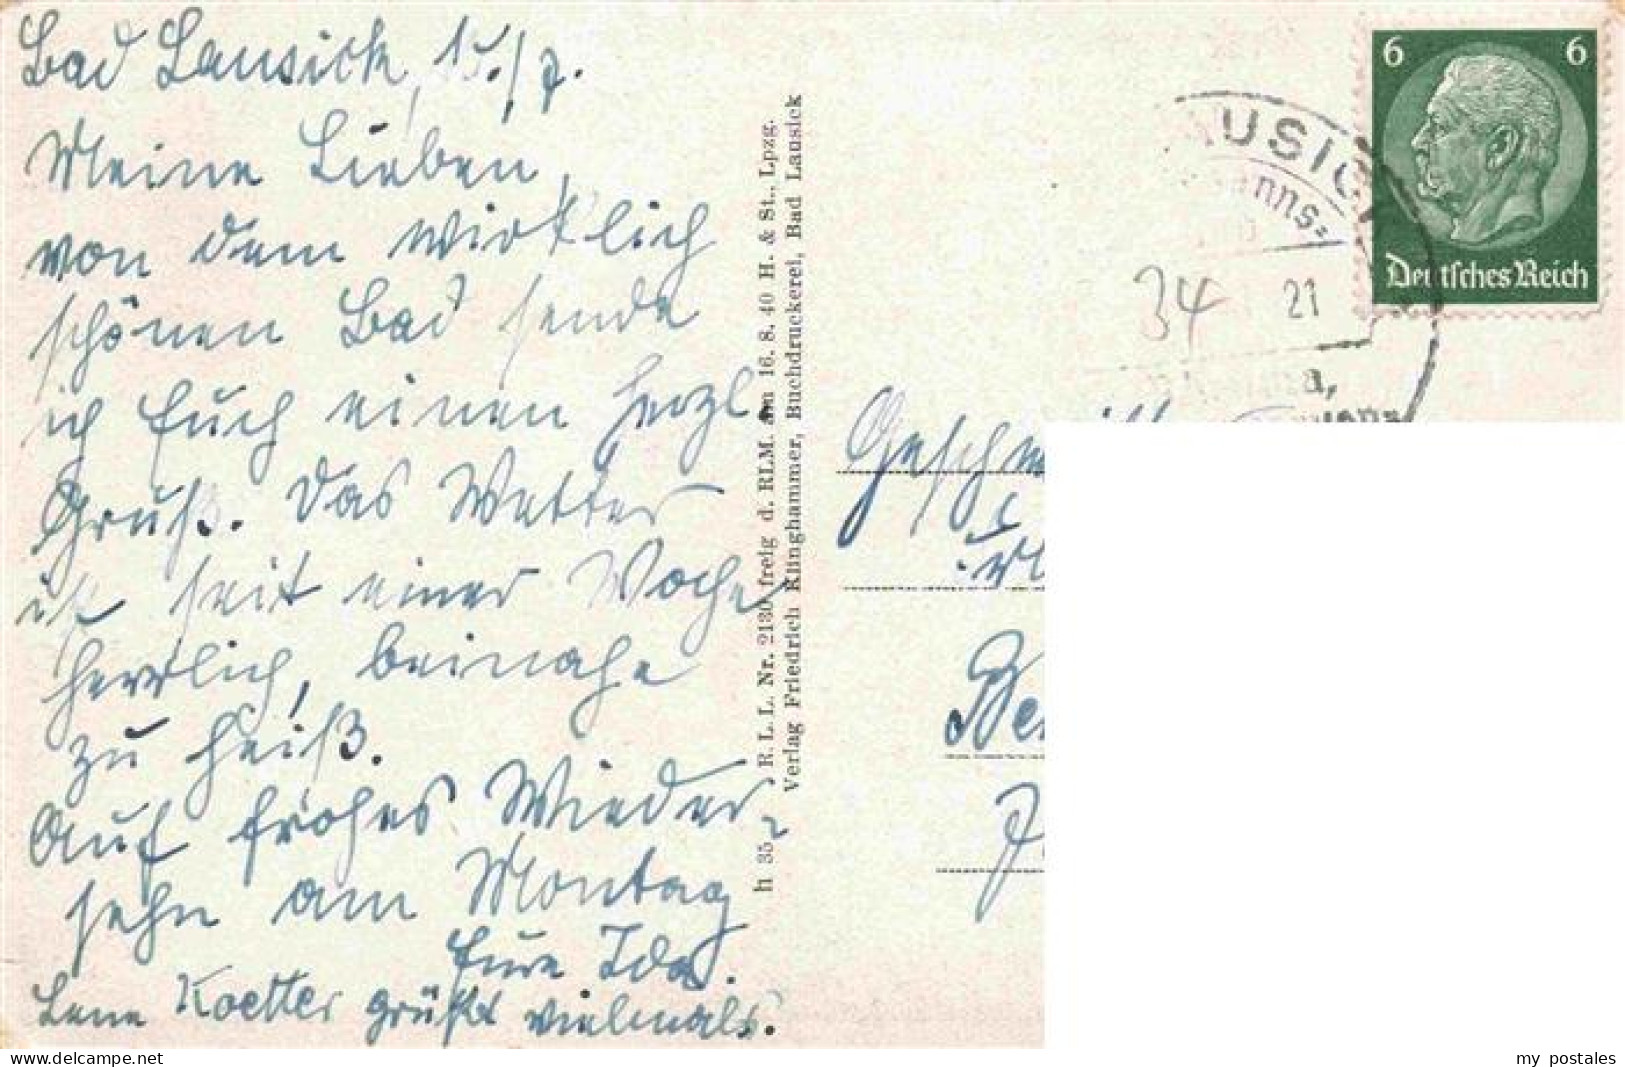 Bad Lausick, 15./7.
Meine Lieben,
von dem wirklich
schönen Bad sende
ich Euch einen herzl.
Gruß. Das Wetter
ist seit einer Woche
herrlich, beinahe
zu heiß.
Auf frohes Wieder-
sehn am Montag
Eure Ida.
Lene Koetter grüßt vielmals.
h 35 R. L. L. Nr. 2130 freig d. RLM. am 16. 8. 40 H. & St., Lpzg.
Verlag Friedrich Klinghammer, Buchdruckerei, Bad Lausick
USICK
34
21
6 6
Deutsches Reich
Geschw
my postales